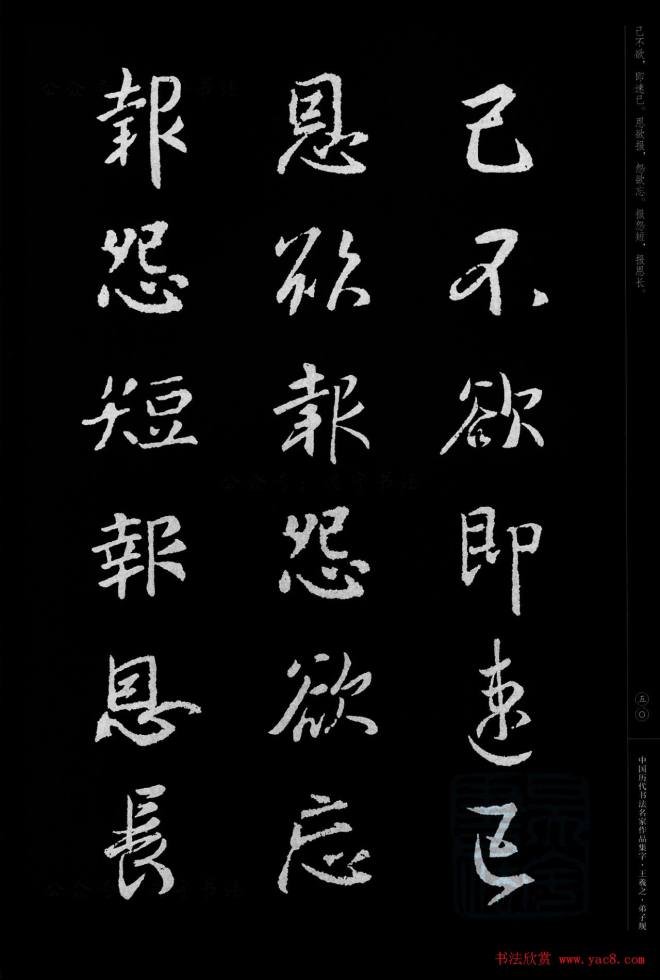 己不欲即速已
恩欲報怨欲忘
報怨短報恩長
己不欲，即速已。恩欲报，怨欲忘。报怨短，报恩长。
五〇
中国历代书法名家作品集字·王羲之·弟子规
书法欣赏 www.yac8.com